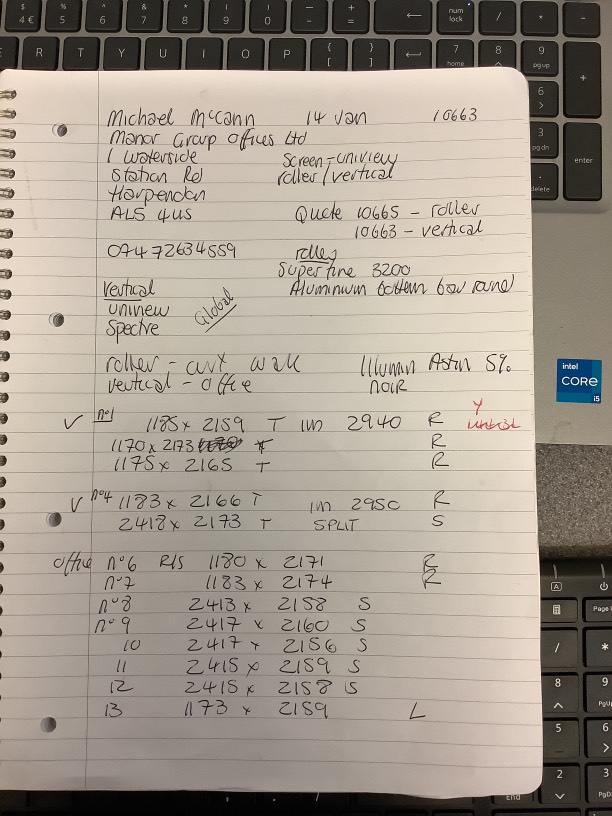 Michael McCann 14 Jan 10663
Manor Group Offices Ltd
1 Waterside Screen - uniview
Station Rd roller/vertical
Harpenden
AL5 4US Quote 10665 - roller
10663 - vertical
07472634559 roller
Superfine 3200
vertical Aluminium bottom bar round
uniview Global
Spectre
roller - cut walk Illumin Astin 5%
vertical - office noir
V no1 1185 x 2159 T im 2940 R Y
1170 x 2173 T R
1175 x 2165 T R
V no4 1183 x 2166 T im 2950 R
2418 x 2173 T SPLIT S
office no6 R/S 1180 x 2171 R
no7 1183 x 2174 R
no8 2413 x 2158 S
no9 2417 x 2160 S
10 2417 x 2156 S
11 2415 x 2159 S
12 2415 x 2158 S
13 1173 x 2159 L
intel
CORE
i5
num lock
E R T Y U I O P
7 home
8
9 pgup
6
3 pgdn
delete
enter
Page
8
9 PgUp
5
6
2
3 PgD
End